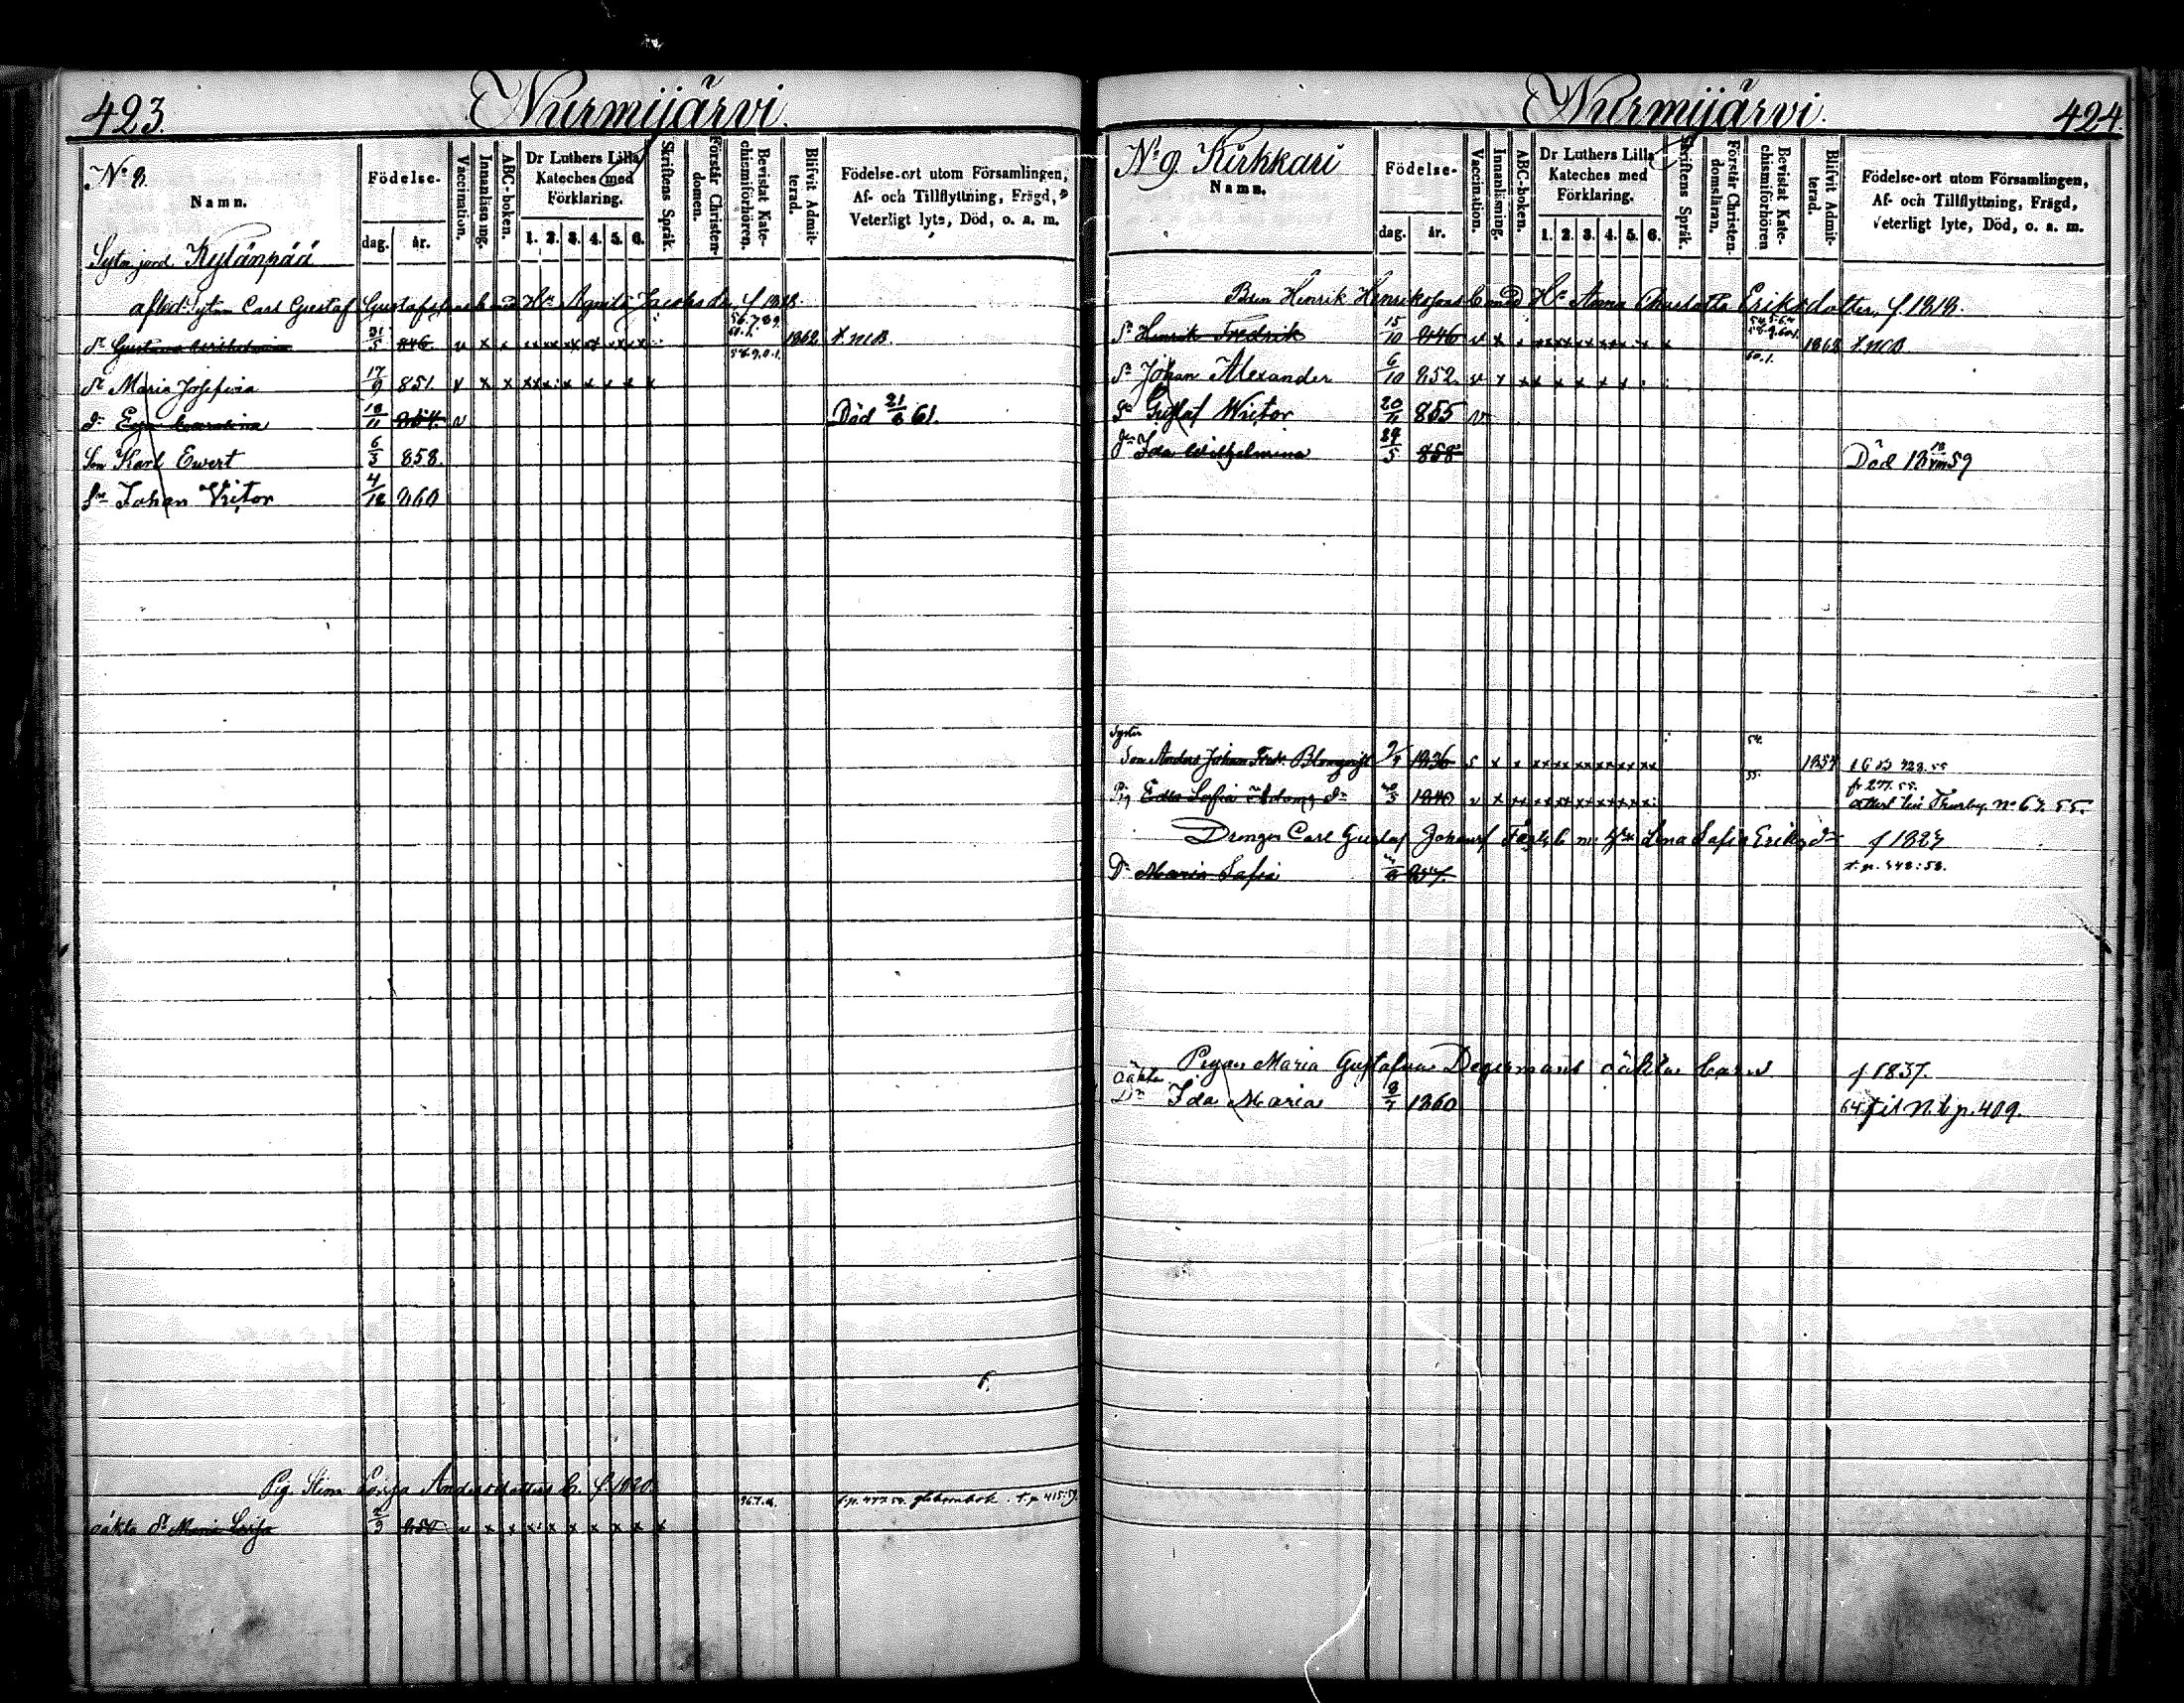 423.
Nurmijärvi.
No 8.
Namn.
Sytn. jord. Kylänpää
Födelse-
dag. år.
Vaccination.
Innanläsning.
ABC-boken.
Dr Luthers Lilla Kateches med Förklaring.
1. 2. 3. 4. 5. 6.
Skriftens Språk.
Förstår Christen-domen.
Bevistat Kate-chismiförhören.
Blifvit Admit-terad.
Födelse-ort utom Församlingen, Af- och Tillflyttning, Frägd, Veterligt lyte, Död, o. a. m.
Carl Gustaf Gustafs barn med Hu Agnita Jacobsdr f 1818.
dr Gustava Wilhelmina 31/5 846 v x x 1862
dr Maria Josefina 17/9 851 v x x
dr Eva Carolina 18/11 854 v Död 21/6 61.
Son Karl Ewert 6/3 858.
Sn Johan Victor 4/12 860
Pig. Stina Lovisa Andersdotters b. f. 1820
oäkta dr Maria Lovisa 2/9 850 v x x
Nurmijärvi.
424.
No 9. Kirkkari
Namn.
Födelse-
dag. år.
Vaccination.
Innanläsning.
ABC-boken.
Dr Luthers Lilla Kateches med Förklaring.
1. 2. 3. 4. 5. 6.
Skriftens Språk.
Förstår Christen-domsläran.
Bevistat Kate-chismiförhören
Blifvit Admit-terad.
Födelse-ort utom Församlingen, Af- och Tillflyttning, Frägd, Veterligt lyte, Död, o. a. m.
Bdn Henrik Henrikssons b med Hu Anna Charlotta Eriksdotter, f. 1818.
Sn Henrik Fredrik 15/10 846 v x
Sn Johan Alexander 6/10 852 v
Sn Gustaf Victor 20/11 855 v
dr Ida Wilhelmina 29/5 858 Död 18 59
Son Anders Johan Blomqvist 1836 1854
Pig Edla Sofia Adams dr 1840 v x No 67. 55.
Drengen Carl Gustaf Johans b m Hu Lena Sofia Eriks dr f 1824
Dr Maria Sofia 857. 348:58.
Pigan Maria Gustafva Degermans oäkta barn f 1837.
oäkta
Dr Ida Maria 8/7 1860 64 p. 409.